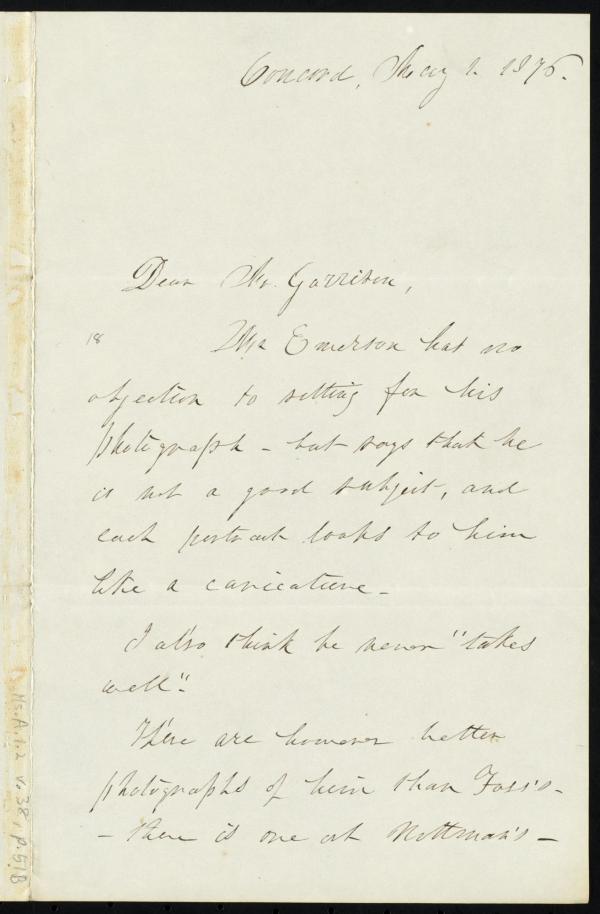 Concord, May 1. 1876.
Dear Mr. Garrison,
18
Mr Emerson has no
objection to sitting for his
photograph - but says that he
is not a good subject, and
each portrait looks to him
like a caricature -
I also think he never "takes
well".
There are however better
photographs of him than Foss's -
- there is one at Nottman's -
Ms.A.1.2 v.38, p.51B